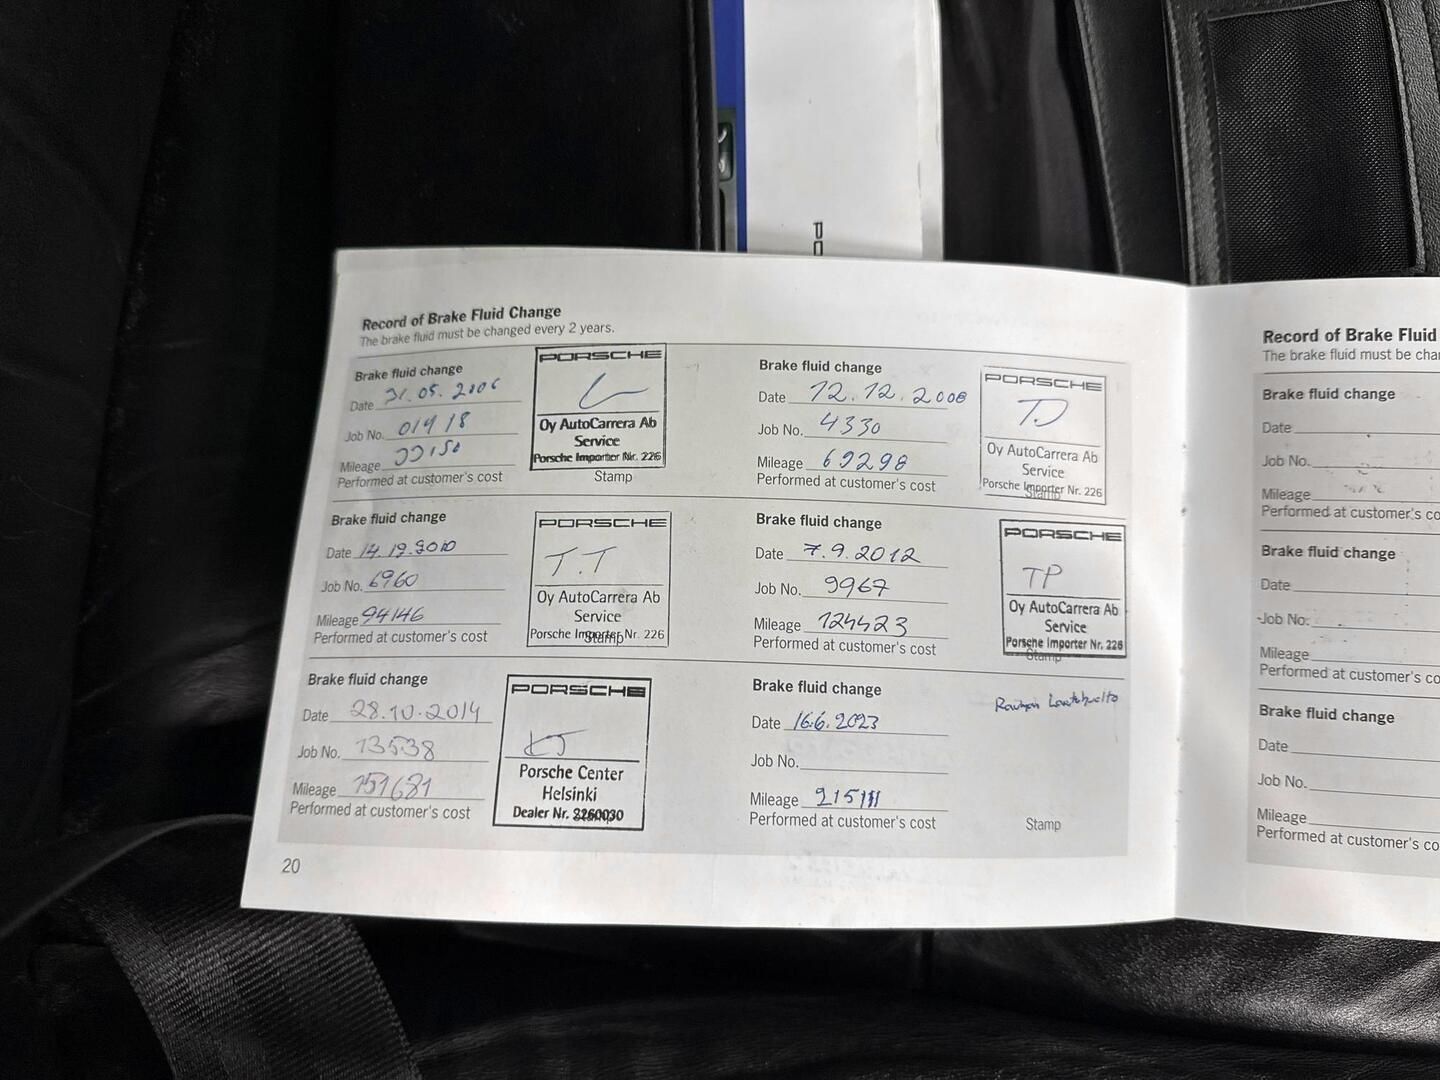 PO
Record of Brake Fluid Change
The brake fluid must be changed every 2 years.
Brake fluid change
Date 31.05.2006
Job No. 01418
Mileage
Performed at customer's cost
PORSCHE
Oy AutoCarrera Ab
Service
Porsche Importer Nr. 226
Stamp
Brake fluid change
Date 12.12.2008
Job No. 4330
Mileage 69298
Performed at customer's cost
PORSCHE
Oy AutoCarrera Ab
Service
Porsche Importer Nr. 226
Stamp
Brake fluid change
Date 14.12.2010
Job No. 6960
Mileage 94146
Performed at customer's cost
PORSCHE
T.T
Oy AutoCarrera Ab
Service
Porsche Importer Nr. 226
Stamp
Brake fluid change
Date 7.9.2012
Job No. 9967
Mileage 124423
Performed at customer's cost
PORSCHE
TP
Oy AutoCarrera Ab
Service
Porsche Importer Nr. 226
Stamp
Brake fluid change
Date 28.10.2014
Job No. 13538
Mileage 151681
Performed at customer's cost
PORSCHE
Porsche Center
Helsinki
Dealer Nr. 2260030
Brake fluid change
Date 16.6.2023
Job No.
Mileage 215111
Performed at customer's cost
Stamp
20
Record of Brake Fluid
The brake fluid must be cha
Brake fluid change
Date
Job No.
Mileage
Performed at customer's co
Brake fluid change
Date
Job No.
Mileage
Performed at customer's co
Brake fluid change
Date
Job No.
Mileage
Performed at customer's co